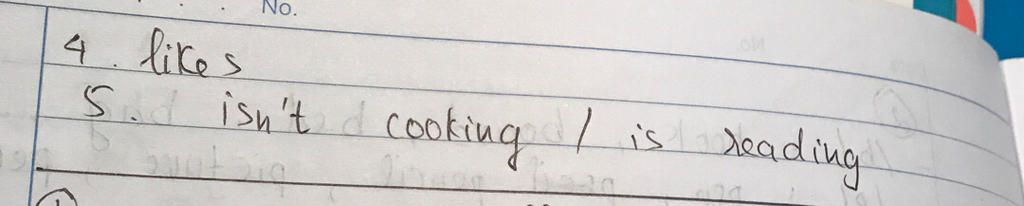 No.
4. likes
5. isn't cooking / is reading